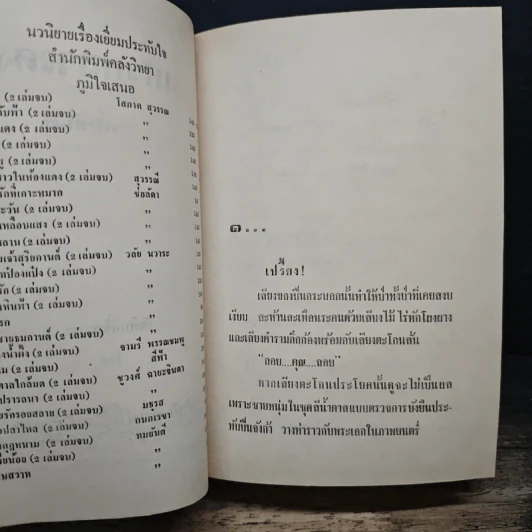 นวนิยายเรื่องเยี่ยมประทับใจ
สำนักพิมพ์คลังวิทยา
ภูมิใจเสนอ
(2 เล่มจบ) โสภาค สุวรรณ
(2 เล่มจบ) ”
แดง (2 เล่มจบ) ”
(2 เล่มจบ) ”
(2 เล่มจบ) ”
าวในห้องแดง (2 เล่มจบ) สุวรรณี
รักที่เกาะหมาก ช่อลัดา
ะวัน (2 เล่มจบ) ”
เหลือบแสง (2 เล่มจบ) ”
ลาน (2 เล่มจบ) ”
มเจ้าสุริยกานต์ (2 เล่มจบ) วลัย นวาระ
(2 เล่มจบ) ”
รัก (2 เล่มจบ) ”
(2 เล่มจบ) ”
(2 เล่มจบ) ”
(2 เล่มจบ) จามรี พรรณชมพู
(2 เล่มจบ) สีฟ้า
(2 เล่มจบ) ชูวงศ์ ฉายะจินดา
ปรารถนา (2 เล่มจบ) ”
รักรอยสลาย (2 เล่มจบ) มธุรส
(2 เล่มจบ) กนกเรขา
(2 เล่มจบ) ทมยันตี
(2 เล่มจบ) ”
”
๑...
เปรี้ยง!
เสียงของปืนกระบอกนั้นทำให้ป่าทั้งป่าที่เคยสงบ
เงียบ สะท้านสะเทือนระคนด้วยเสียงไม้ไร่หักโผงผาง
และเสียงคำรามกึกก้องพร้อมกับเสียงตะโกนลั่น
“ถอย....คุณ....ถอย”
หากเสียงตะโกนประโยคนั้นดูจะไม่เป็นผล
เพราะชายหนุ่มในชุดสีน้ำตาลแบบตรวจการยังยืนประ-
ทับปืนจังก้า วางท่าราวกับพระเอกในภาพยนตร์